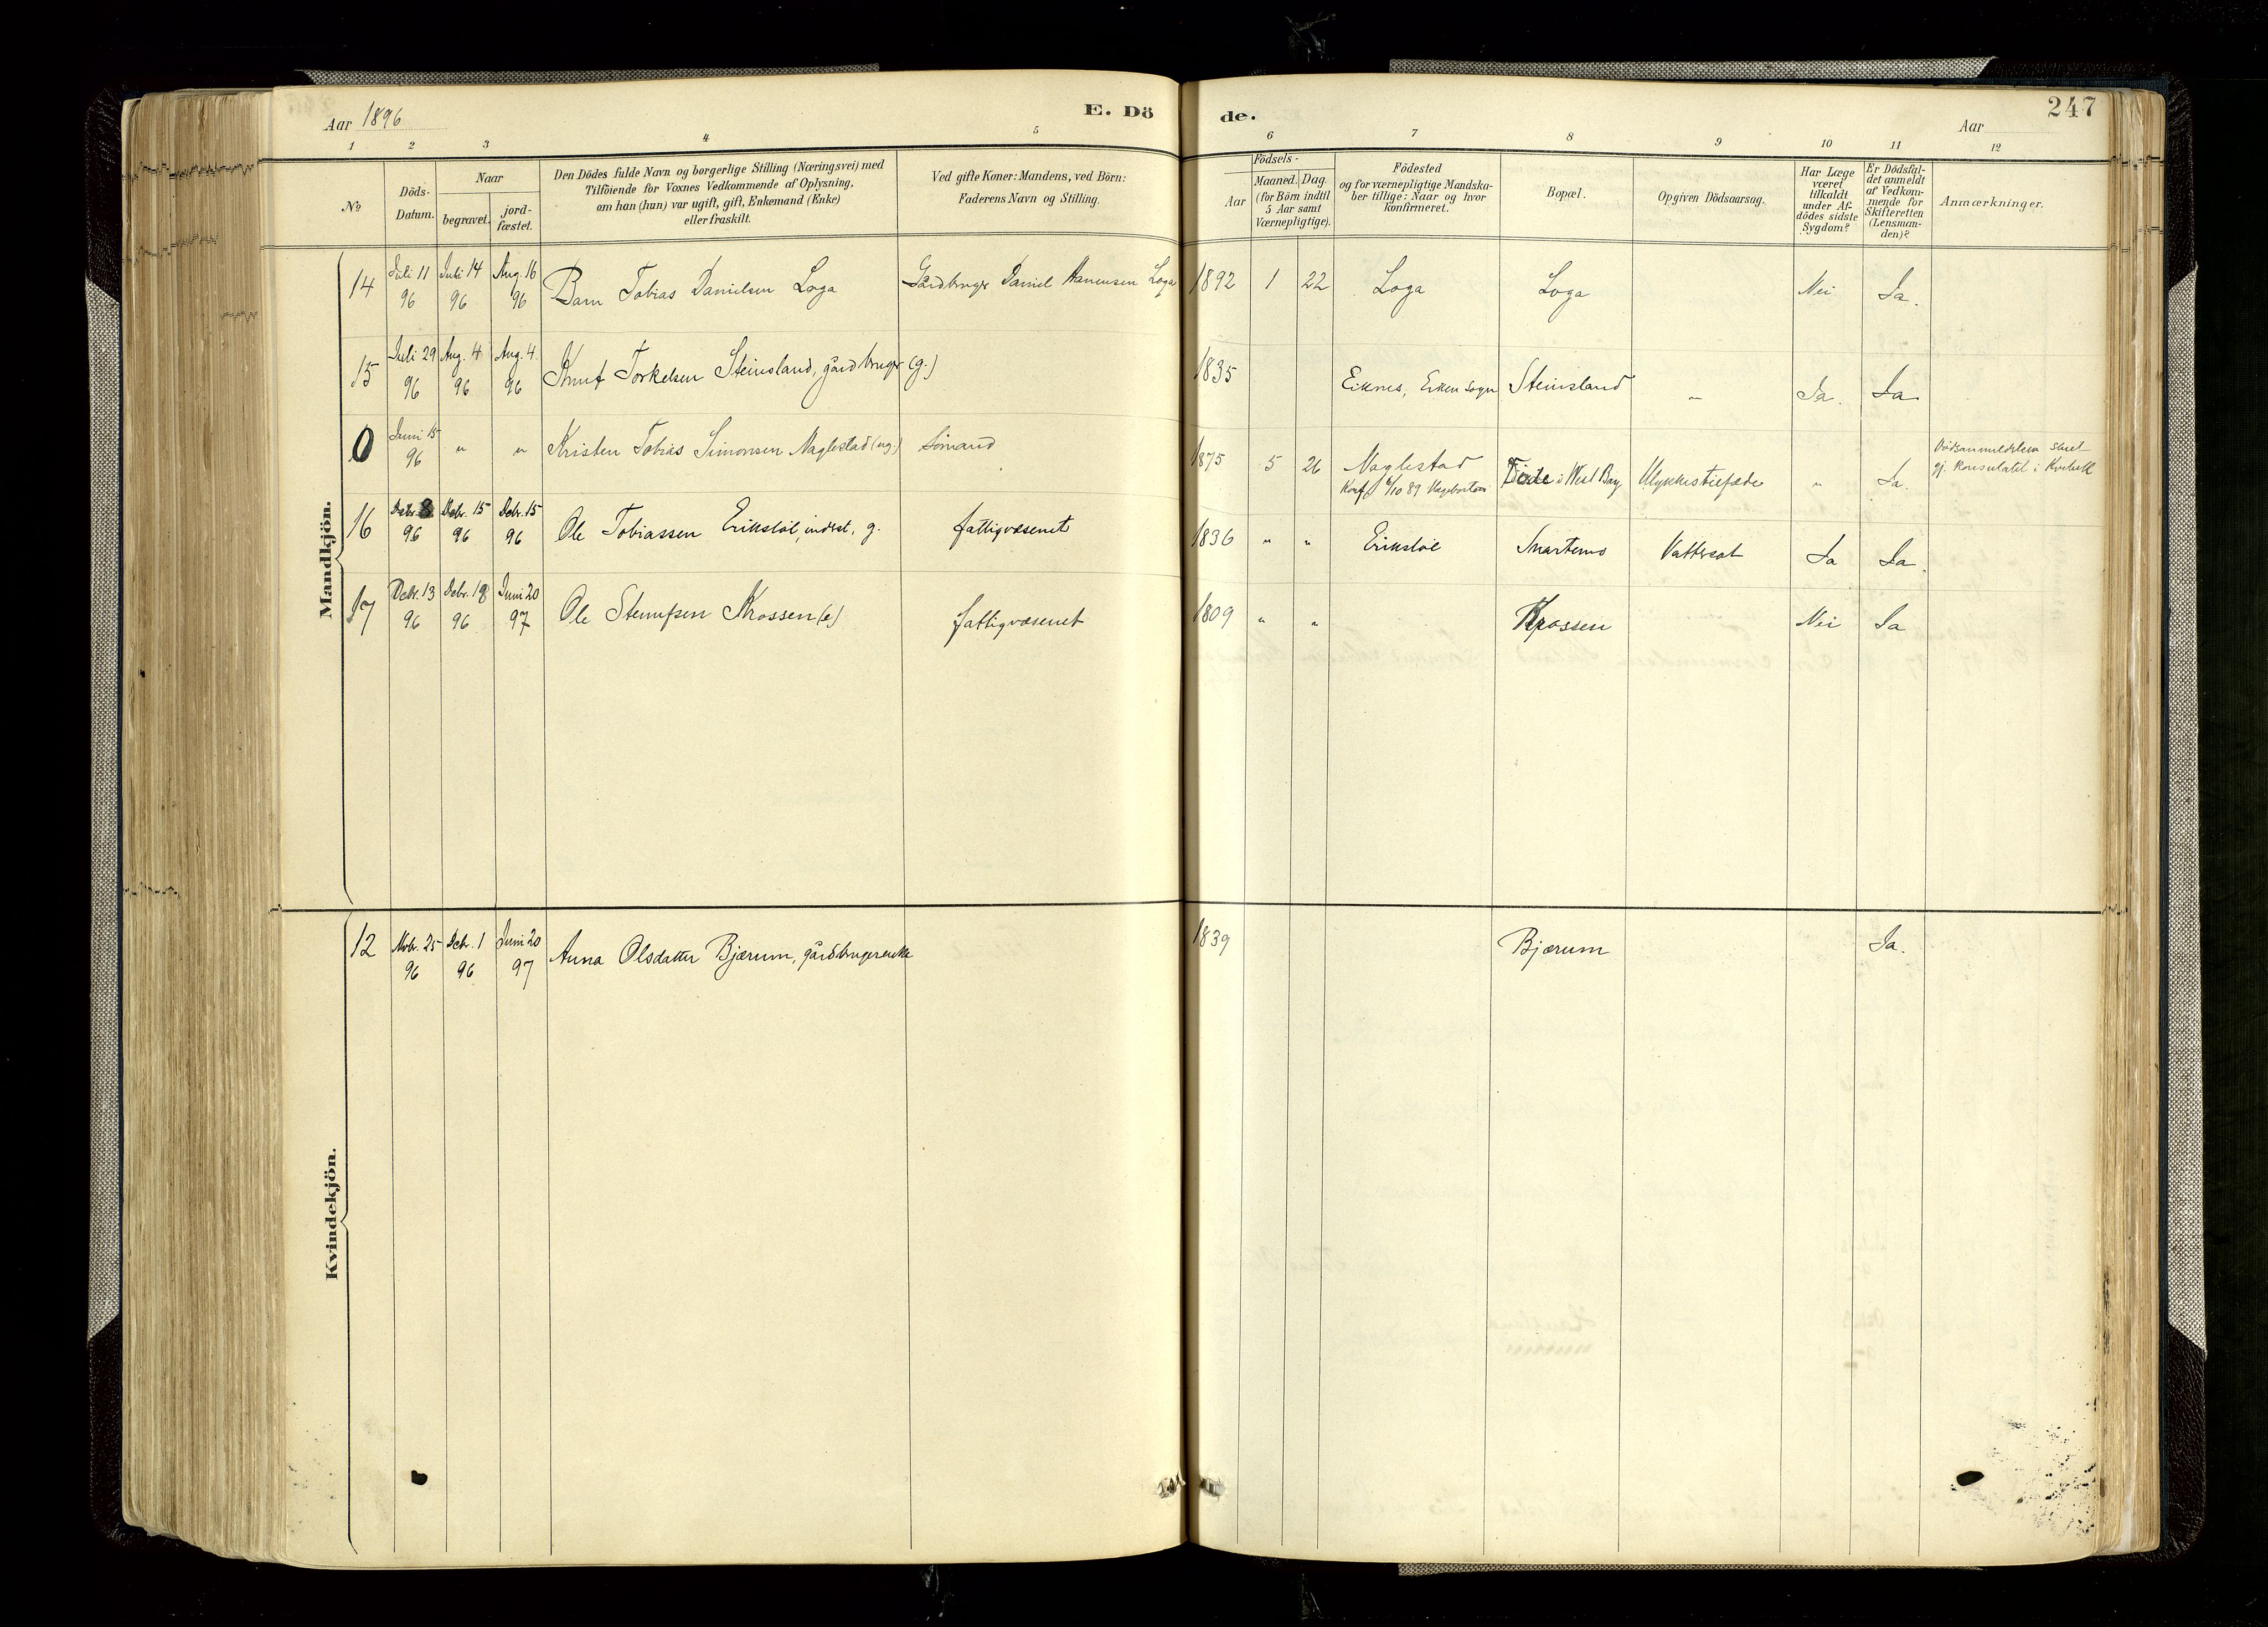 Aar 1896
E. Dö
de.
247
Aar
1 2 3 4 5 6 7 8 9 10 11 12
№
Döds-
Datum.
Naar
begravet.
jord-
fæstet.
Den Dödes fulde Navn og borgerlige Stilling (Næringsvei) med
Tilföiende for Voxnes Vedkommende af Oplysning,
om han (hun) var ugift, gift, Enkemand (Enke)
eller fraskilt.
Ved gifte Koner: Mandens, ved Börn:
Faderens Navn og Stilling.
Födsels-
Aar
Maaned. Dag.
(for Börn indtil
5 Aar samt
Værnepligtige).
Födested
og for værnepligtige Mandska-
ber tillige: Naar og hvor
konfirmeret.
Bopæl.
Opgiven Dödsaarsag.
Har Læge
været
tilkaldt
under Af-
dödes sidste
Sygdom?
Er Dödsfal-
det anmeldt
af Vedkom-
mende for
Skifteretten
(Lensman-
den)?
Anmærkninger.
Mandkjön.
14 Juli 11 96 Juli 14 96 Aug. 16 96 Barn Tobias Danielsen Loga Gårdbruger Daniel Loga 1892 1 22 Loga Loga Nei Ja.
15 Juli 29 96 Aug. 4 96 Aug. 4. 96 Knut Torkelsen Steinsland, gårdbruger (g.) 1835 Eiknes, sogn Steinsland „ Ja. Ja
0 Juni 15 96 „ „ Kristen Tobias Simonsen Naglestad (ug.) Sömand 1875 5 26 Naglestad
Konf. /10 89 Döde i West Bay Ulykkestilfælde „ Ja. Dödsanmeldelsen
gj. Konsulatet i
16 Debr. 8 96 Debr. 15 96 Debr. 15 96 Ole Tobiassen Erikstöl, inderst, g. fattigvæsenet 1836 „ „ Erikstöl Snartemo Vattersot Ja Ja.
17 Debr. 13 96 Debr. 18 96 Juni 20 97 Ole Krossen (e) fattigvæsenet 1809 „ „ Krossen Nei Ja
Kvindekjön.
12 Novbr. 25 96 Debr. 1 96 Juni 20 97 Anna Olsdatter Bjærum, gårdbrugerenke 1839 Bjærum Ja.